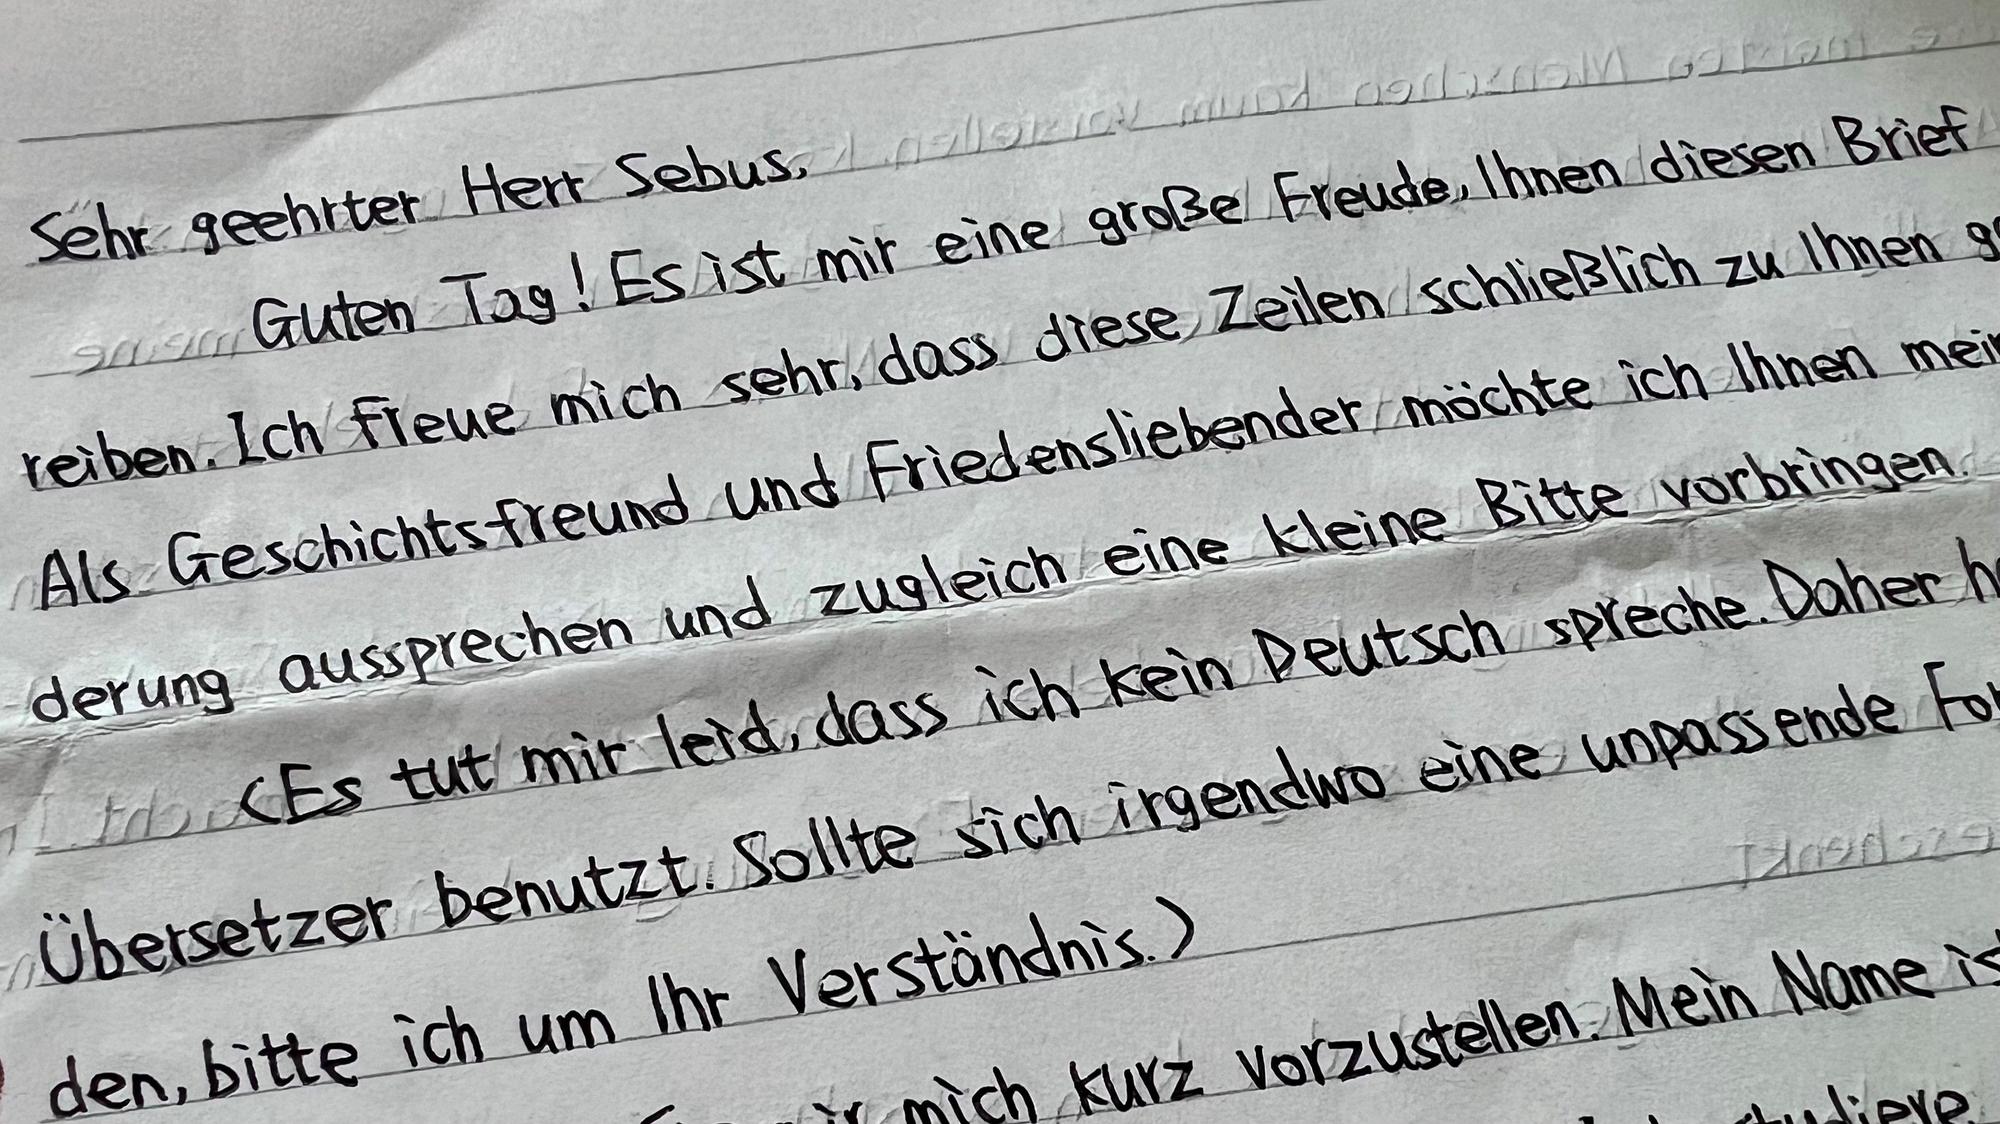 Sehr geehrter Herr Sebus,
Guten Tag! Es ist mir eine große Freude, Ihnen diesen Brief
reiben. Ich freue mich sehr, dass diese Zeilen schließlich zu Ihnen
Als Geschichtsfreund und Friedensliebender möchte ich Ihnen
derung aussprechen und zugleich eine kleine Bitte vorbringen.
(Es tut mir leid, dass ich kein Deutsch spreche. Daher
Übersetzer benutzt. Sollte sich irgendwo eine unpassende
den, bitte ich um Ihr Verständnis.)
mich kurz vorzustellen. Mein Name
studiere